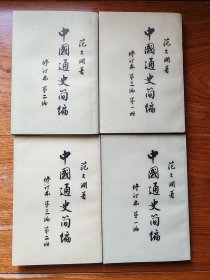 范文澜著
中國通史简编
修订本 第二编
范文澜著
中國通史简编
修订本 第三编 第一册
范文澜著
中國通史简编
修订本 第三编 第二册
范文澜著
中國通史简编
修订本 第一编